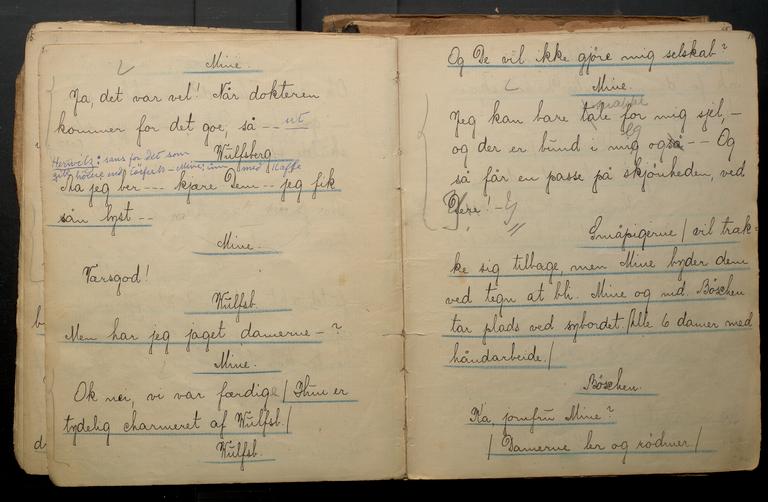 Mine.
Ja, det var vel! Når dokteren
kommer for det goe, så -- ut
Wulfsberg
Herwitz: sans for det som
Mine ind med Kaffe
Ha jeg ber --- kjære Dem -- jeg fik
sån lyst --
Mine.
Varsgod!
Wulfsb.
Men har jeg jaget damerne - ?
Mine.
Ok nei, vi var færdige / Hun er
tydelig charmeret af Wulfsb. /
Wulfsb.
Og De vil ikke gjöre mig selskab?
Mine.
snakke
Jeg kan bare tale for mig sjel, -
og der er bund i mig også -- Og
så får en passe på skjönheden, ved
Dere! -
Småpigerne / vil trak-
ke sig tilbage, men Mine byder dem
ved tegn at bli. Mine og md. Böschen
tar plads ved sybordet. / Alle 6 damer med
håndarbeide. /
Böschen.
Ka, jomfru Mine?
/ Damerne ler og rödmer /